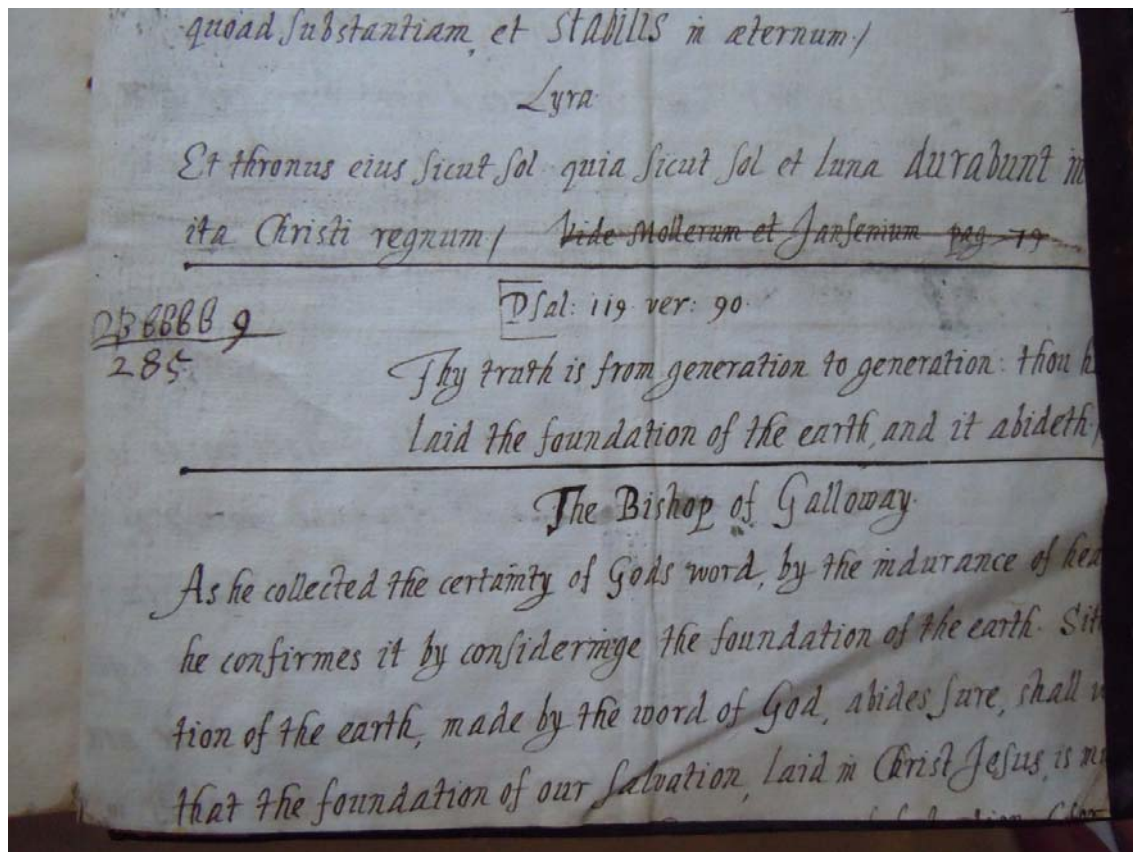 quoad substantiam, et stabilis in æternum /
Lyra
Et thronus eius sicut sol quia sicut sol et luna durabunt in
ita Christi regnum / Vide Mollerum et Jansenium pag 79
Psal: 119 ver: 90
9
285
Thy truth is from generation to generation: thou h
laid the foundation of the earth, and it abideth /
The Bishop of Galloway
As he collected the certainty of Gods word, by the indurance of hea
he confirmes it by consideringe the foundation of the earth. Sith
tion of the earth, made by the word of God, abides sure, shall
that the foundation of our salvation, laid in Christ Jesus, is